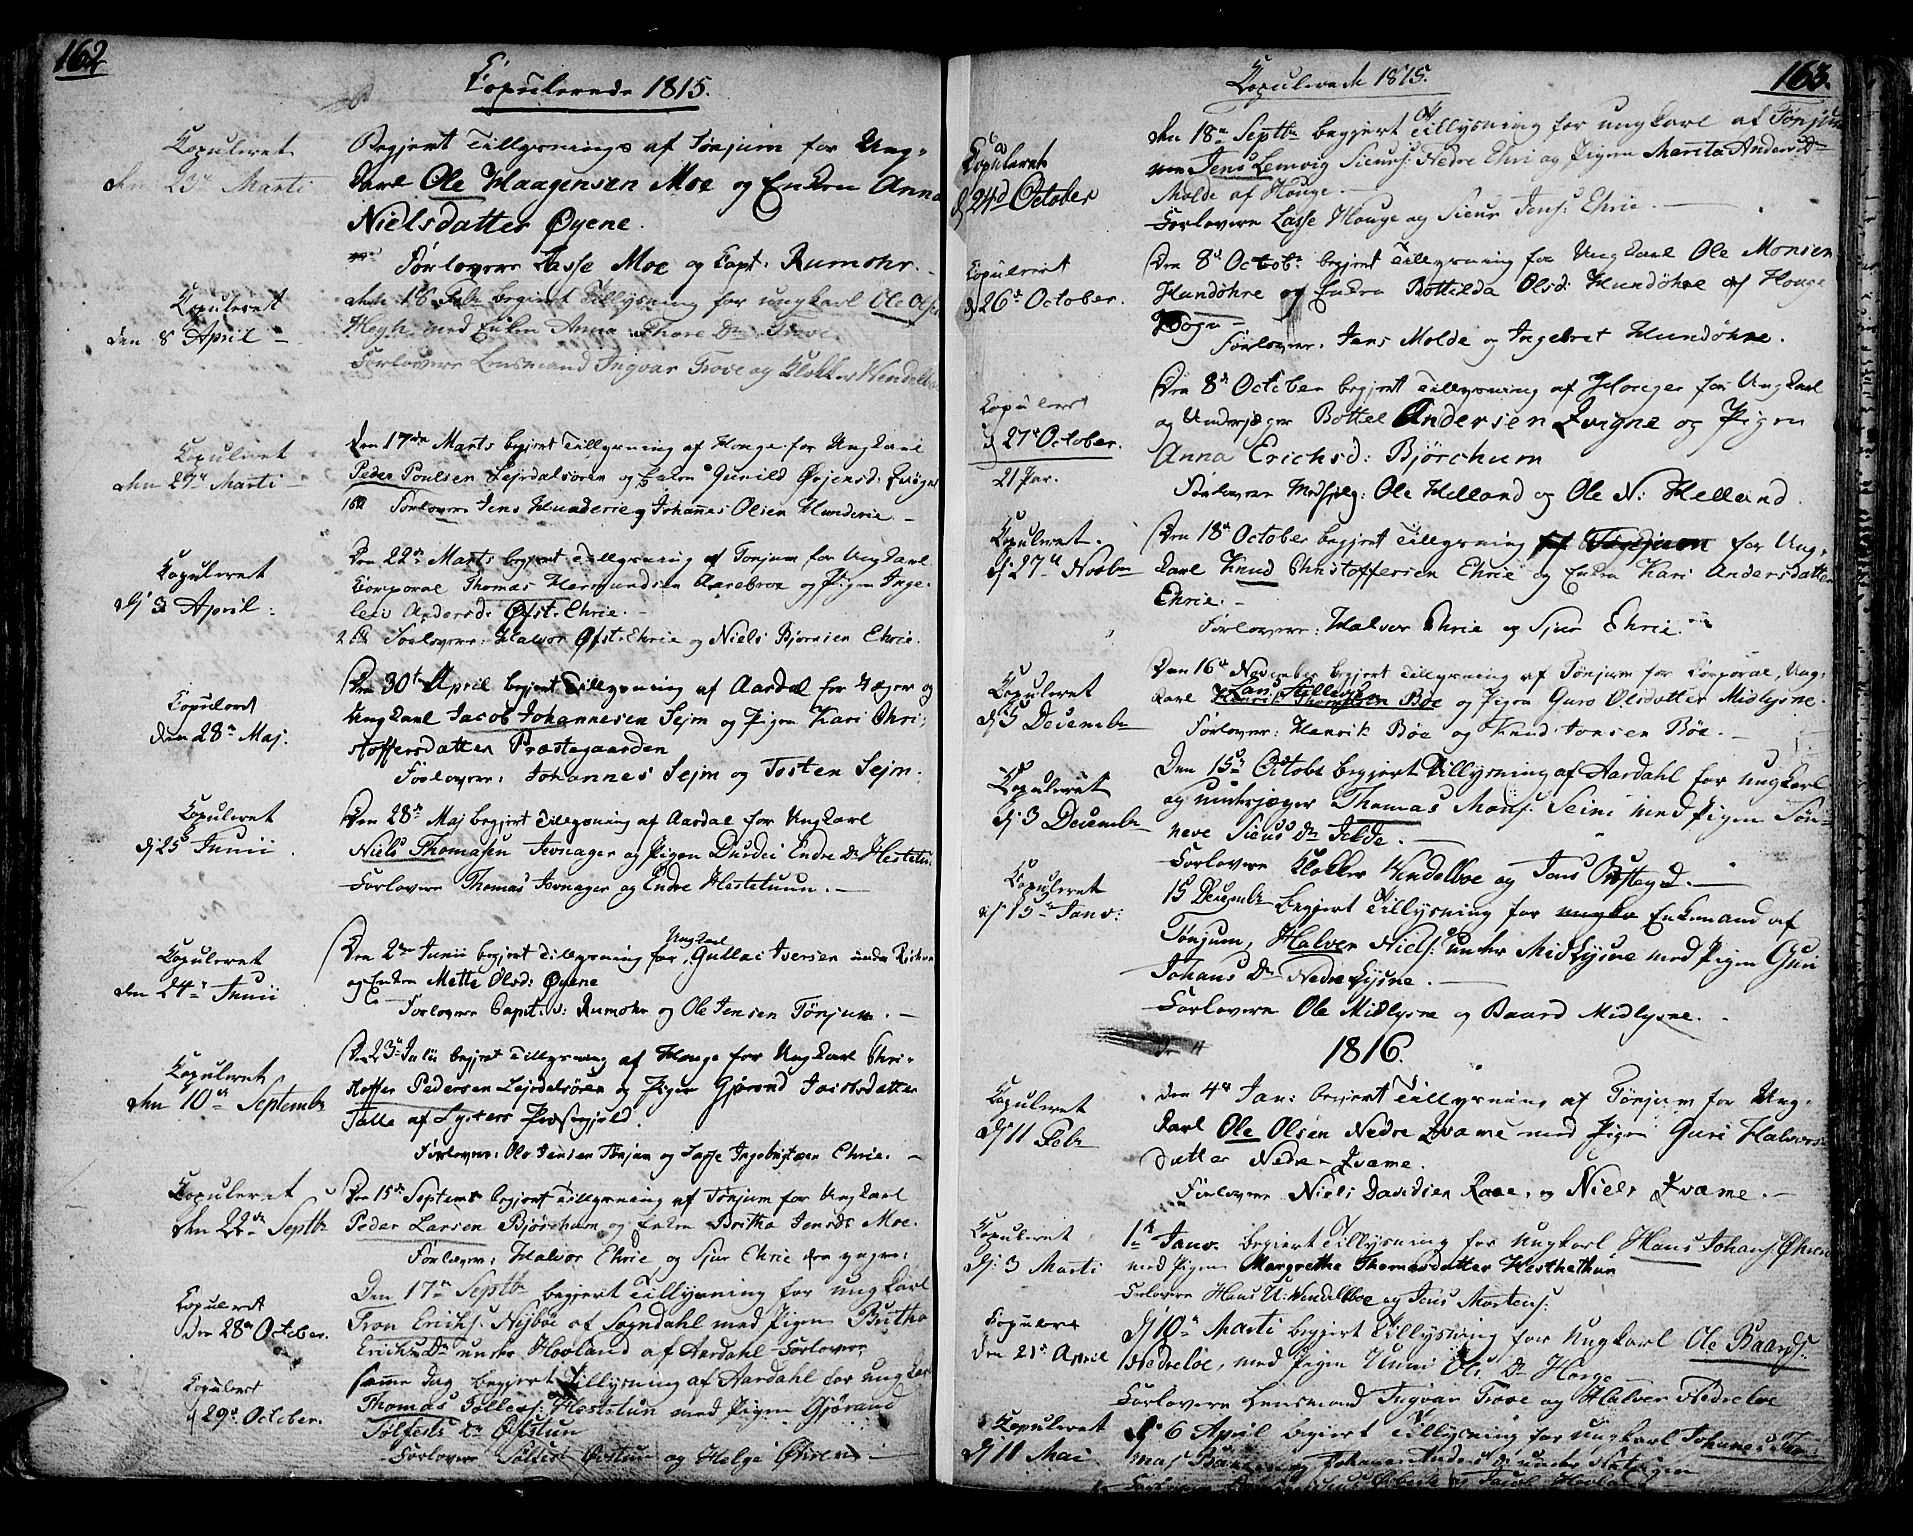 162
Copulerede 1815.
Copuleret
den 23de Marti
Begjert Tillysning af Tønjum for Ung-
karl Ole Haagensen Moe og Enken Anna
Nielsdatter Øyene.
Forlovere Lasse Moe og Capt: Rumohr.
Copuleret
den 8 April
den 16 Feb: begiert Tillysning for ungkarl Ole Ols:
Hegh, med Enken Anna Thore Dr
Forlovere Lensmand Ingvar Trove og Klokker Wendelboe
Copuleret
den 27de Marti
Den 17de Marts begjert Tillysning af Houge for Ungkarl
Peder Poulsen Lejrdalsøren og Enken Gunild
Forlovere Jens Hunderie og Johannes Olsen Hunderie.
Copuleret
d: 3 April:
Den 22de Marts begjert Tillysning af Tønjum for Ungkarl
Corporal Thomas Hermundsen Aarebroe og Pigen Inge-
leiv Andersd: Øfst. Ehrie.
Forlovere: Halvor Øfst. Ehrie og Niels Bjørnsen Ehrie.
Copuleret
den 28de Maj.
Den 30te April begjert Tillysning af Aardal for Jæger og
Ungkarl Jacob Johannesen Sejm og Pigen Kari Chri-
stoffersdatter Præstegaarden
Forlovere: Johannes Sejm og Tosten Sejm.
Copuleret
d: 25 Junii
Den 28de Maj begjert Tillysning af Aardal for Ungkarl
Niels Thomasen Jevnager og Pigen Durdei Endre Dr Hestetun
Forlovere Thomas Jevnager og Endre Hestetuun.
Copuleret
den 24de Junii
Ungkarl
Den 2den Junii begjert Tillysning for Gullac Iversen under
og Enken Mette Olsd: Øyene
Forlovere Capt. v: Rumohr og Ole Jensen Tønjum.
Copuleret
den 10de Septembr
Den 23de Julii begjert Tillysning af Houge for Ungkarl Chri-
stoffer Pedersen Lejrdalsøren og Pigen Gjørond Jacobsdatter
Talle af Lysters Præstegjeld.
Forlovere: Ole Jensen Tønjum og Lasse Ingebrigtsen Ehrie.
Copuleret
den 22de Septbr
Den 15de Septemb begjert Tillysning af Tønjum for Ungkarl
Peder Larsen Bjørchum og Enken Britha Jensdr Moe.
Forlovere: Halvor Ehrie og Sjur Ehrie
Copuleret
den 28de October.
Den 17de Septbr begjert Tillysning for ungkarl
Tron Erichs: Nisbøe af Sogndahl med Pigen Britha
Erichs Dr under Hovland af Aardahl Forlovere
Copuleret
d 29de October.
samme Dag begjert Tillysning af Aardahl for ungkarl
Thomas Tollefs: Hestetun med Pigen Gjørand
Tolfests Dr Øfstun
Forlovere Tolfest Øfstun og Helge Øhren
163.
Copulerede 1815.
Copuleret
d 24de October
den 18de Septbr begjert Tillysning for ungkarl af Tønjum
Jens Lemvig Sieurs: Nedre Ehri og Pigen Marita Anders Dr
Molde af Houge.
Forlovere Lasse Houge og Sieur Jens: Ehrie.
Copuleret
d 26de October.
Den 8de Octobr begjert Tillysning for Ungkarl Ole Monsen
Hundøhre og Enken Bottilda Olsd: Hundøhre af Houge
Sogn
Forlovere: Jens Molde og Ingebret Hundøhre.
Copuleret
d 27de October.
21 Par.
Den 8de October begjert Tillysning af Houger for Ungkarl
og Underjæger Bottel Andersen Qvigne og Pigen
Anna Erichsd: Bjørchum
Forlovere Medhjelp: Ole Helland og Ole N: Helland.
Copuleret.
d: 27de Novbr
Den 18de October begjert Tillysning af Tønjum for Ung-
karl Knud Christoffersen Ehrie og Enken Kari Andersdatter
Ehrie.
Forlovere: Halvor Ehrie og Sjur Ehrie.
Copuleret
d: 5 Decembr
Den 16de November begjert Tillysning af Tønjum for Corporal, Ung-
karl Henrik Thomassen Bøe og Pigen Guro Olsdatter Midlysne.
Forlovere: Henrik Bøe og Knud Jonsen Bøe.
Copuleret
d: 3 Decembr
Den 15de Octobr begjert Tillysning af Aardahl for Ungkarl
og underjæger Thomas Mons: Seim med Pigen Sön-
neve Sieurs Dr Jelde.
Forlovere Klokker Wendelboe og Jens
Copuleret
d: 15de Janv:
15 Decembr begjert Tillysning for Enkemand af
Tønjum, Halvor Niels: under Midlysne med Pigen Guri
Johans Dr Nedre Lysne.
Forlovere Ole Midlysne og Baard Midlysne.
1816.
Copuleret
d: 11 Febr
Den 4de Jan: begjert Tillysning af Tønjum for Ung-
karl Ole Olsen Nedre Qvame med Pigen Guri Halvors-
datter Nedre-Qvame.
Forlovere Niels Davidsen Raae, og Niels Qvame.
Copuleret
d: 3 Marti
1de Janv. begiert Tillysning for Ungkarl Hans Johans: Øhren
med Pigen Margrethe Thomasdatter Hesthethun
Forlovere Hans U: Wendelboe og Jens Mortens:
Copuleret
den 21de April
d: 10de Marti begjert Tillysning for Ungkarl Ole Baards:
Nedreløe, med Pigen Unni Ols Dr Houge
Forlovere Lensmand Ingvar Trove og Halver Nedreløe
Copuleret
d: 11 Mai
d: 6 April begiert Tillysning for ungkarl Johannes Tho-
mas